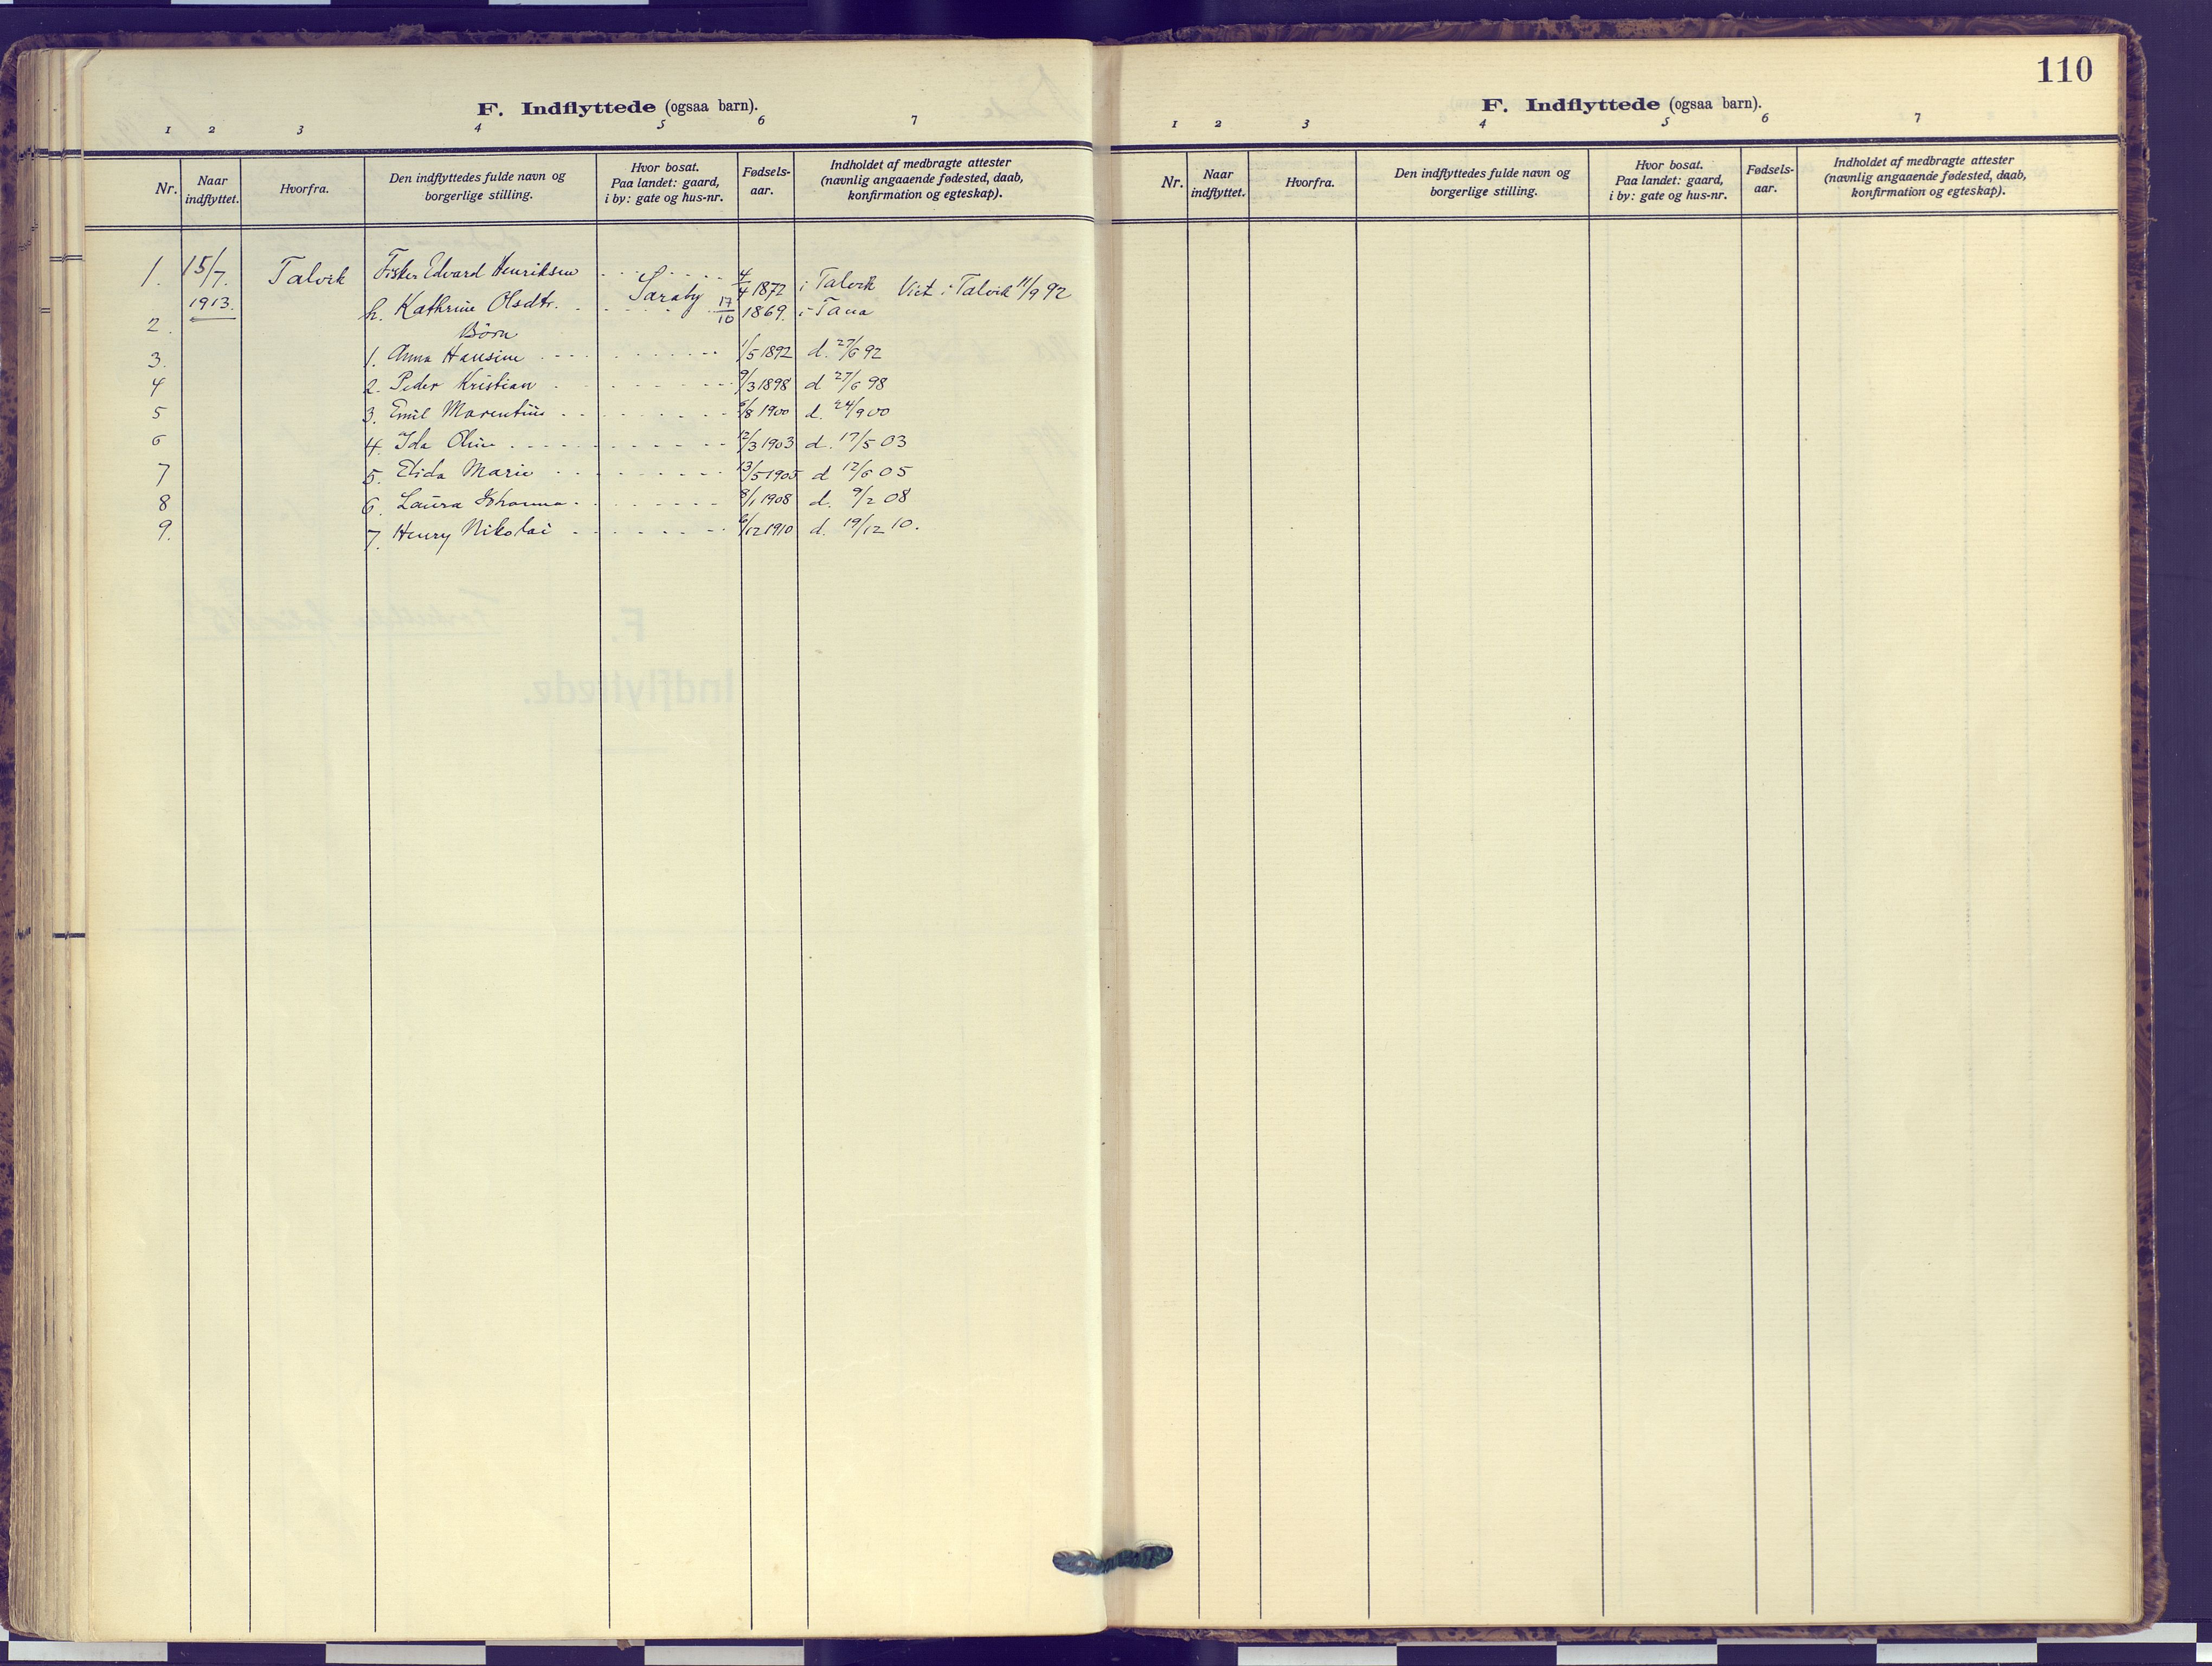 F. Indflyttede (ogsaa barn).
1 2 3 4 5 6 7
Nr. Naar indflyttet. Hvorfra. Den indflyttedes fulde navn og borgerlige stilling. Hvor bosat. Paa landet: gaard, i by: gate og hus-nr. Fødsels-aar. Indholdet af medbragte attester (navnlig angaaende fødested, daab, konfirmation og egteskap).
1. 15/7. 1913. Talvik Fisker Edvard Henriksen Saraby 4/4 1872 i Talvik Viet i Talvik 11/9 92
2. h. Kathrine Olsdtr. 17/10 1869. i Tana
Börn
3. 1. Anna Hansine 1/5 1892 d. 27/6 92
4 2. Peder Kristian 9/3 1898 d 27/6 98
5 3. Emil Marentius /8 1900 d. 24/9 00
6 4. Ida Oline 12/3 1903 d. 17/5 03
7 5. Elida Marie 13/5 1905 d 12/6 05
8 6. Laura Johanna 8/1 1908 d. 9/2 08
9. 7. Henry Nikolai 6/12 1910 d. 19/12 10.
110
F. Indflyttede (ogsaa barn).
1 2 3 4 5 6 7
Nr. Naar indflyttet. Hvorfra. Den indflyttedes fulde navn og borgerlige stilling. Hvor bosat. Paa landet: gaard, i by: gate og hus-nr. Fødsels-aar. Indholdet af medbragte attester (navnlig angaaende fødested, daab, konfirmation og egteskap).